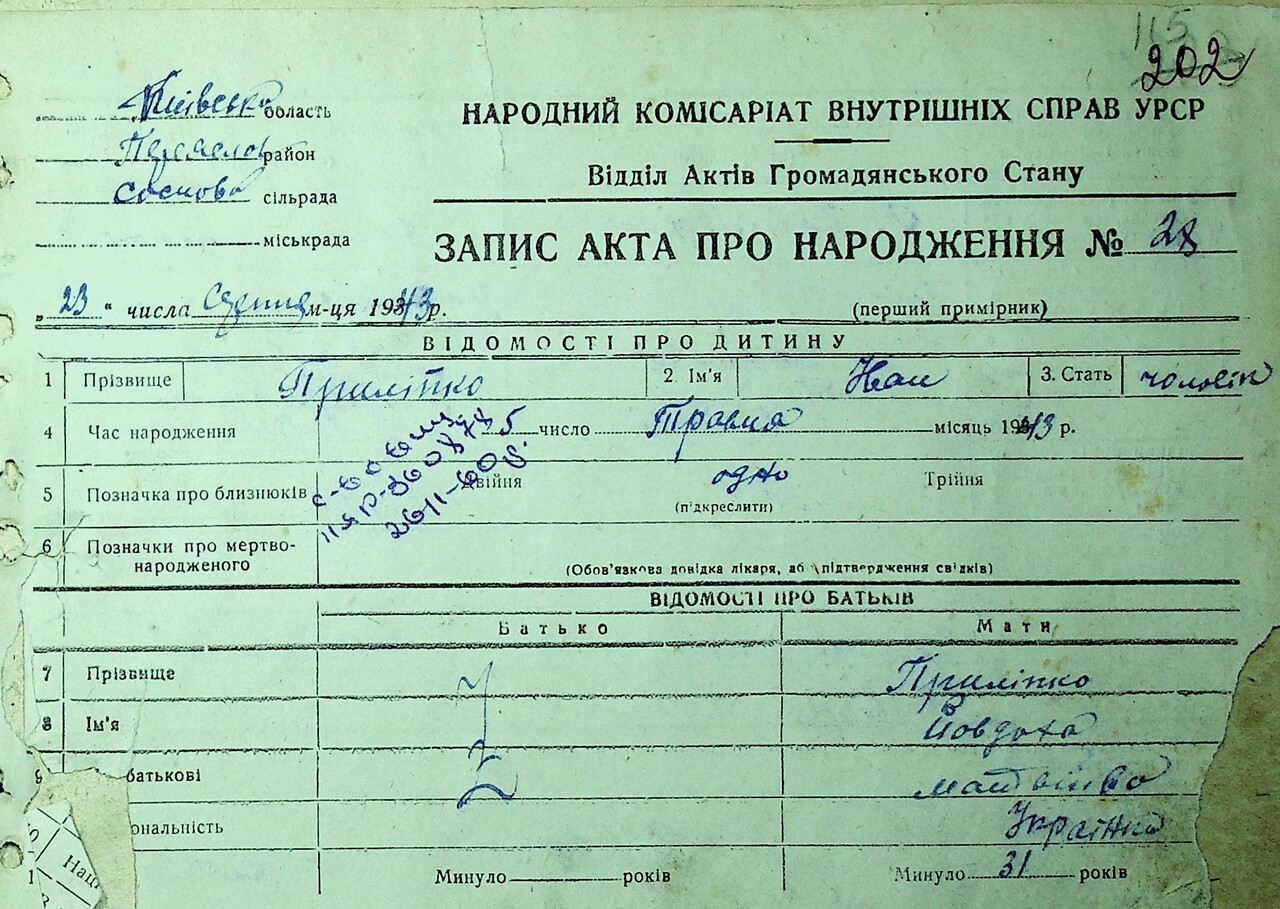 115
202
Київська область
НАРОДНИЙ КОМІСАРІАТ ВНУТРІШНІХ СПРАВ УРСР
район
Відділ Актів Громадянського Стану
сільрада
міськрада
ЗАПИС АКТА ПРО НАРОДЖЕННЯ № 28
„ 23 “ числа м-ця 1943 р.
(перший примірник)
ВІДОМОСТІ ПРО ДИТИНУ
1 Прізвище Приліпко 2 Ім'я Иван 3. Стать чоловік
4 Час народження 5 число Травня місяць 1943 р.
5 Позначка про близнюків Двійня одно Трійня
(підкреслити)
6 Позначки про мертво-
народженого
(Обов'язкова довідка лікаря, або підтвердження свідків)
ВІДОМОСТІ ПРО БАТЬКІВ
Батько Мати
7 Прізвище Приліпко
8 Ім'я Йовдоха
9 батькові
ональність Українка
Минуло років Минуло 31 років
Наці